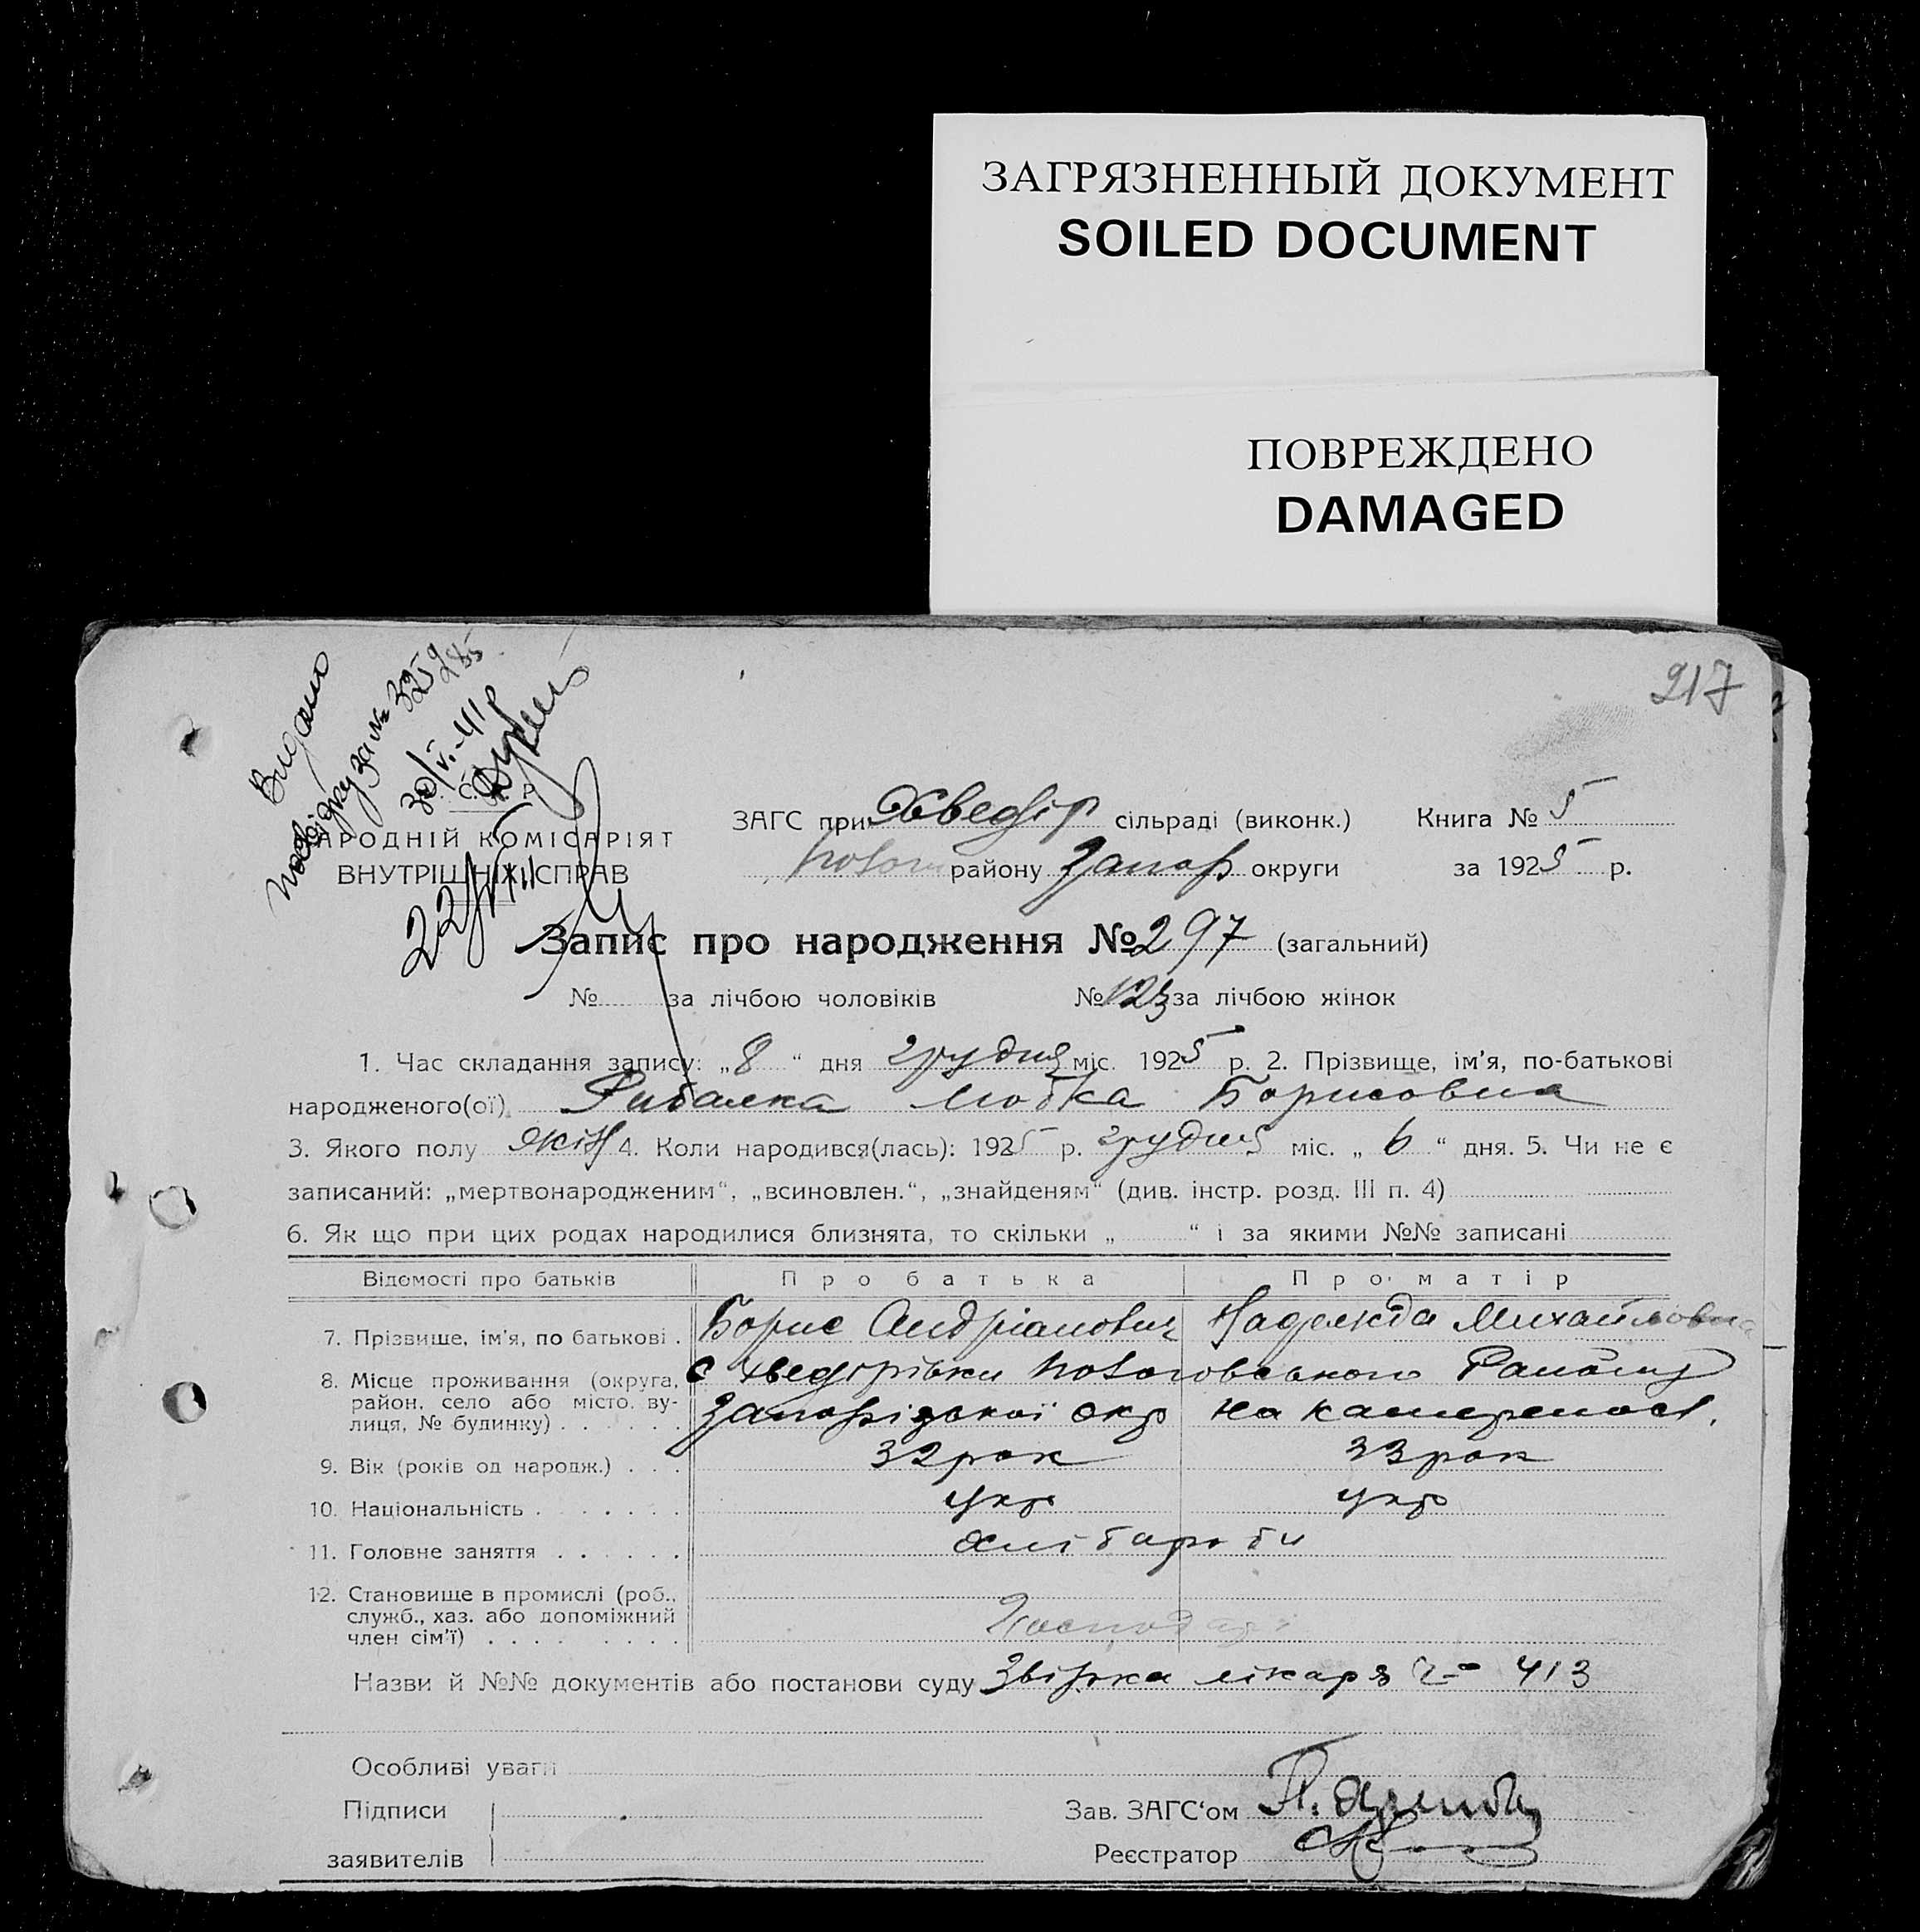 ЗАГРЯЗНЕННЫЙ ДОКУМЕНТ
SOILED DOCUMENT
ПОВРЕЖДЕНО
DAMAGED
217
Видано
посвідку за № 325
30/V-41
С. Р.
НАРОДНІЙ КОМІСАРІЯТ
ВНУТРІШНІХ СПРАВ
ЗАГС при Хведір сільраді (виконк.) Книга № 5
району Запор округи за 1925 р.
Запис про народження № 297 (загальний)
№ за лічбою чоловіків № 123 за лічбою жінок
1. Час складання запису: „8“ дня грудня міс. 1925 р. 2. Прізвище, ім'я, по-батькові
народженого(ої) Рибалка Любка Борисовна
3. Якого полу жін 4. Коли народився(лась): 1925 р. грудня міс. „6“ дня. 5. Чи не є
записаний: „мертвонародженим“, „всиновлен.“, „знайденям“ (див. інстр. розд. III п. 4)
6. Як що при цих родах народилися близнята, то скільки „ “ і за якими №№ записані
Відомості про батьків Про батька Про матір
7. Прізвище, ім'я, по батькові . Борис Андріанович Надежда Михайловна
8. Місце проживання (округа, с Хведорівки Району
район, село або місто, ву-
лиця, № будинку) . . . . . . Запорізької окр
9. Вік (років од народж.) . . . 32 рок 33 рок
10. Національність . . . . . . . укр укр
11. Головне заняття . . . . . . хлібароби
12. Становище в промислі (роб.,
служб., хаз. або допоміжний
член сім'ї) . . . . . . . . Господарі
Назви й №№ документів або постанови суду Звірка лікаря 413
Особливі уваги
Підписи
заявителів
Зав. ЗАГС‘ом
Реєстратор